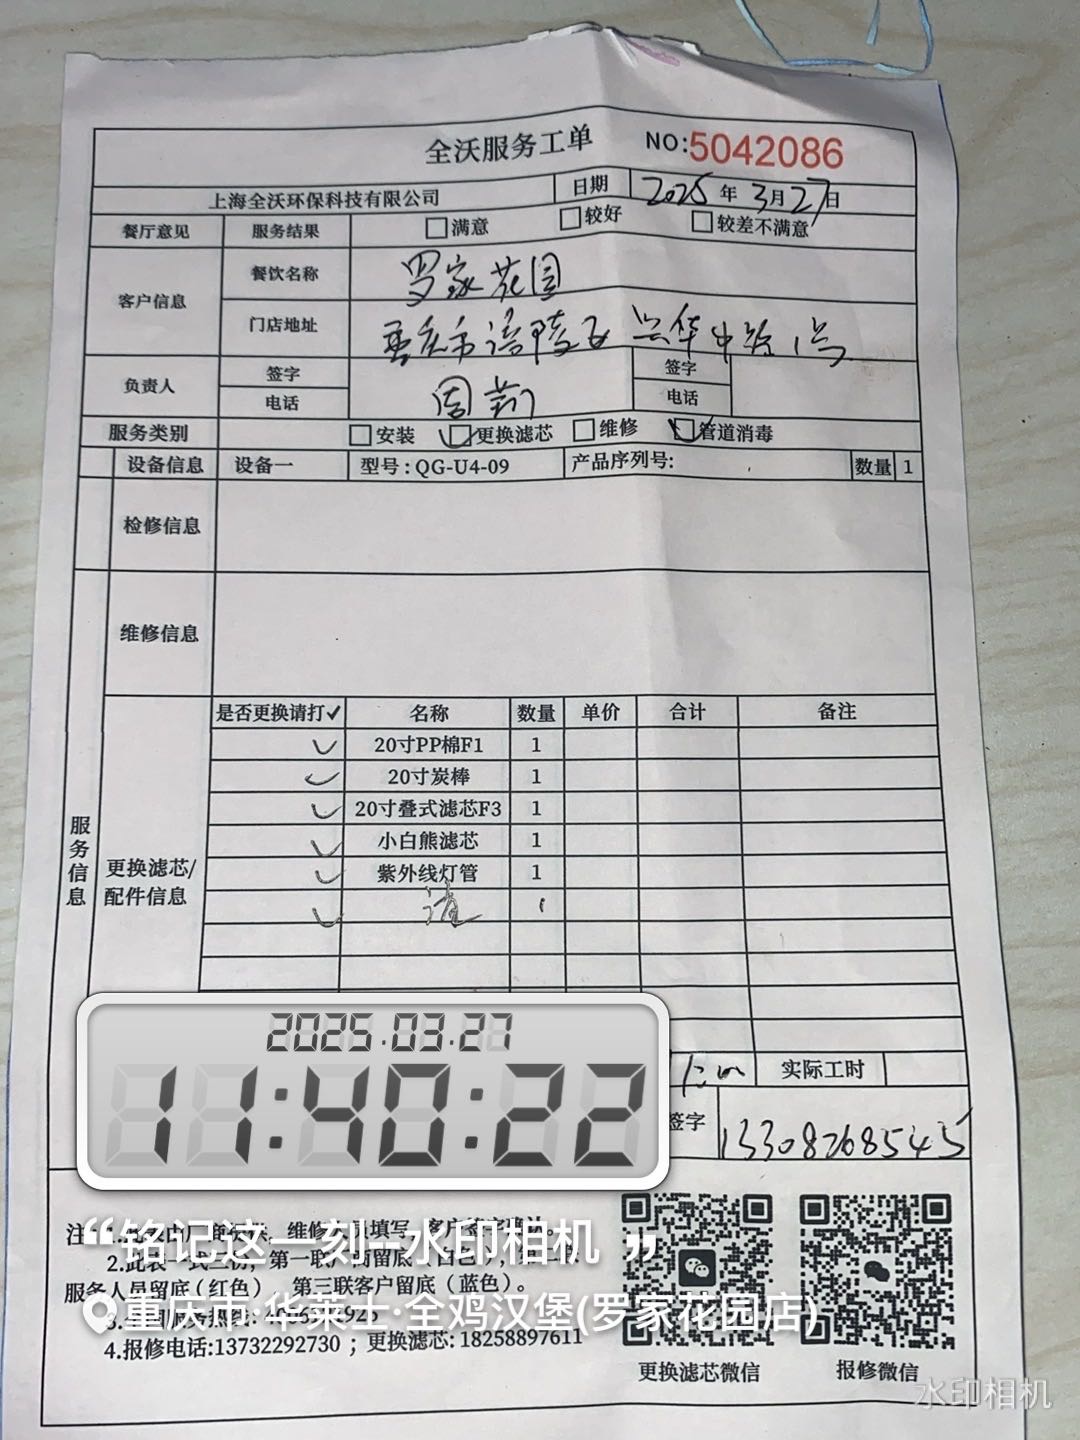 全沃服务工单 NO:5042086
上海全沃环保科技有限公司 日期 2025年3月27日
餐厅意见 服务结果 满意 较好 较差不满意
客户信息 餐饮名称 罗家花园
门店地址 重庆市涪陵区兴华中路1号
负责人 签字 周莉 签字
电话 电话
服务类别 安装 更换滤芯 维修 管道消毒
设备信息 设备一 型号:QG-U4-09 产品序列号: 数量 1
检修信息
维修信息
服务信息
更换滤芯/配件信息
是否更换请打✓ 名称 数量 单价 合计 备注
✓ 20寸PP棉F1 1
✓ 20寸炭棒 1
✓ 20寸叠式滤芯F3 1
✓ 小白熊滤芯 1
✓ 紫外线灯管 1
✓ 1
实际工时
签字 13308268545
2025.03.27
11:40:22
注:
维修人员填写
“铭记这一刻--水印相机”
2.此表一式三份,第一联
服务人员留底(红色),第三联客户留底(蓝色)。
重庆市·华莱士·全鸡汉堡(罗家花园店)
4.报修电话:13732292730 ; 更换滤芯: 18258897611
更换滤芯微信 报修微信
水印相机